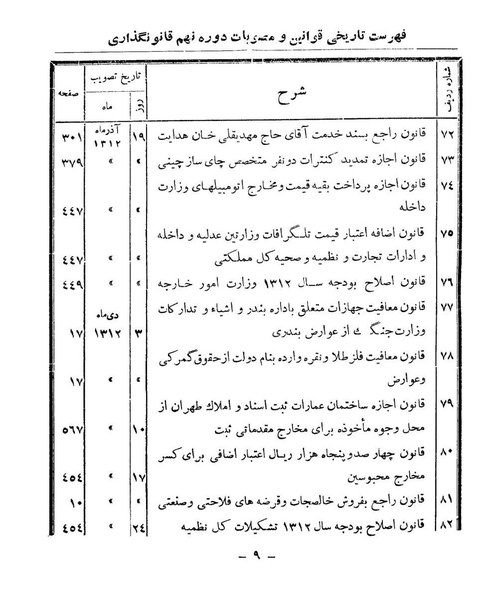 فهرست تاریخی قوانین و مصوبات دوره نهم قانونگذاری
شماره ردیف شرح تاریخ تصویب صفحه
روز ماه
۷۲ قانون راجع بسند خدمت آقای حاج مهدیقلی خان هدایت ۱۹ آذرماه ۱۳۱۲ ۳۰۱
۷۳ قانون اجازه تمدید کنترات دونفر متخصص چای ساز چینی » » ۳۷۹
۷۴ قانون اجازه پرداخت بقیه قیمت ومخارج اتومبیلهای وزارت
داخله » » ٤٤۷
۷۵ قانون اضافه اعتبار قیمت تلگرافات وزارتین عدلیه و داخله
و ادارات تجارت و نظمیه و صحیه کل مملکتی » » ٤٤۷
۷۶ قانون اصلاح بودجه سال ۱۳۱۲ وزارت امور خارجه » » ٤٤۹
۷۷ قانون معافیت جهازات متعلق باداره بندر و اشیاء و تدارکات دی‌ماه
وزارت جنگ از عوارض بندری ۳ ۱۳۱۲ ۱۷
۷۸ قانون معافیت فلز طلا و نقره وارده بنام دولت از حقوق گمرکی
وعوارض » » ۱۷
۷۹ قانون اجازه ساختمان عمارات ثبت اسناد و املاك طهران از
محل وجوه مأخوذه برای مخارج مقدماتی ثبت ۱۰ » ۵۶۷
۸۰ قانون چهار صدوپنجاه هزار ریال اعتبار اضافی برای کسر
مخارج محبوسین ۱۷ » ٤٥٤
۸۱ قانون راجع بفروش خالصجات وقرضه های فلاحتی وصنعتی » » ۱۰
۸۲ قانون اصلاح بودجه سال ۱۳۱۲ تشکیلات کل نظمیه ۲٤ » ٤٥٤
- ۹ -